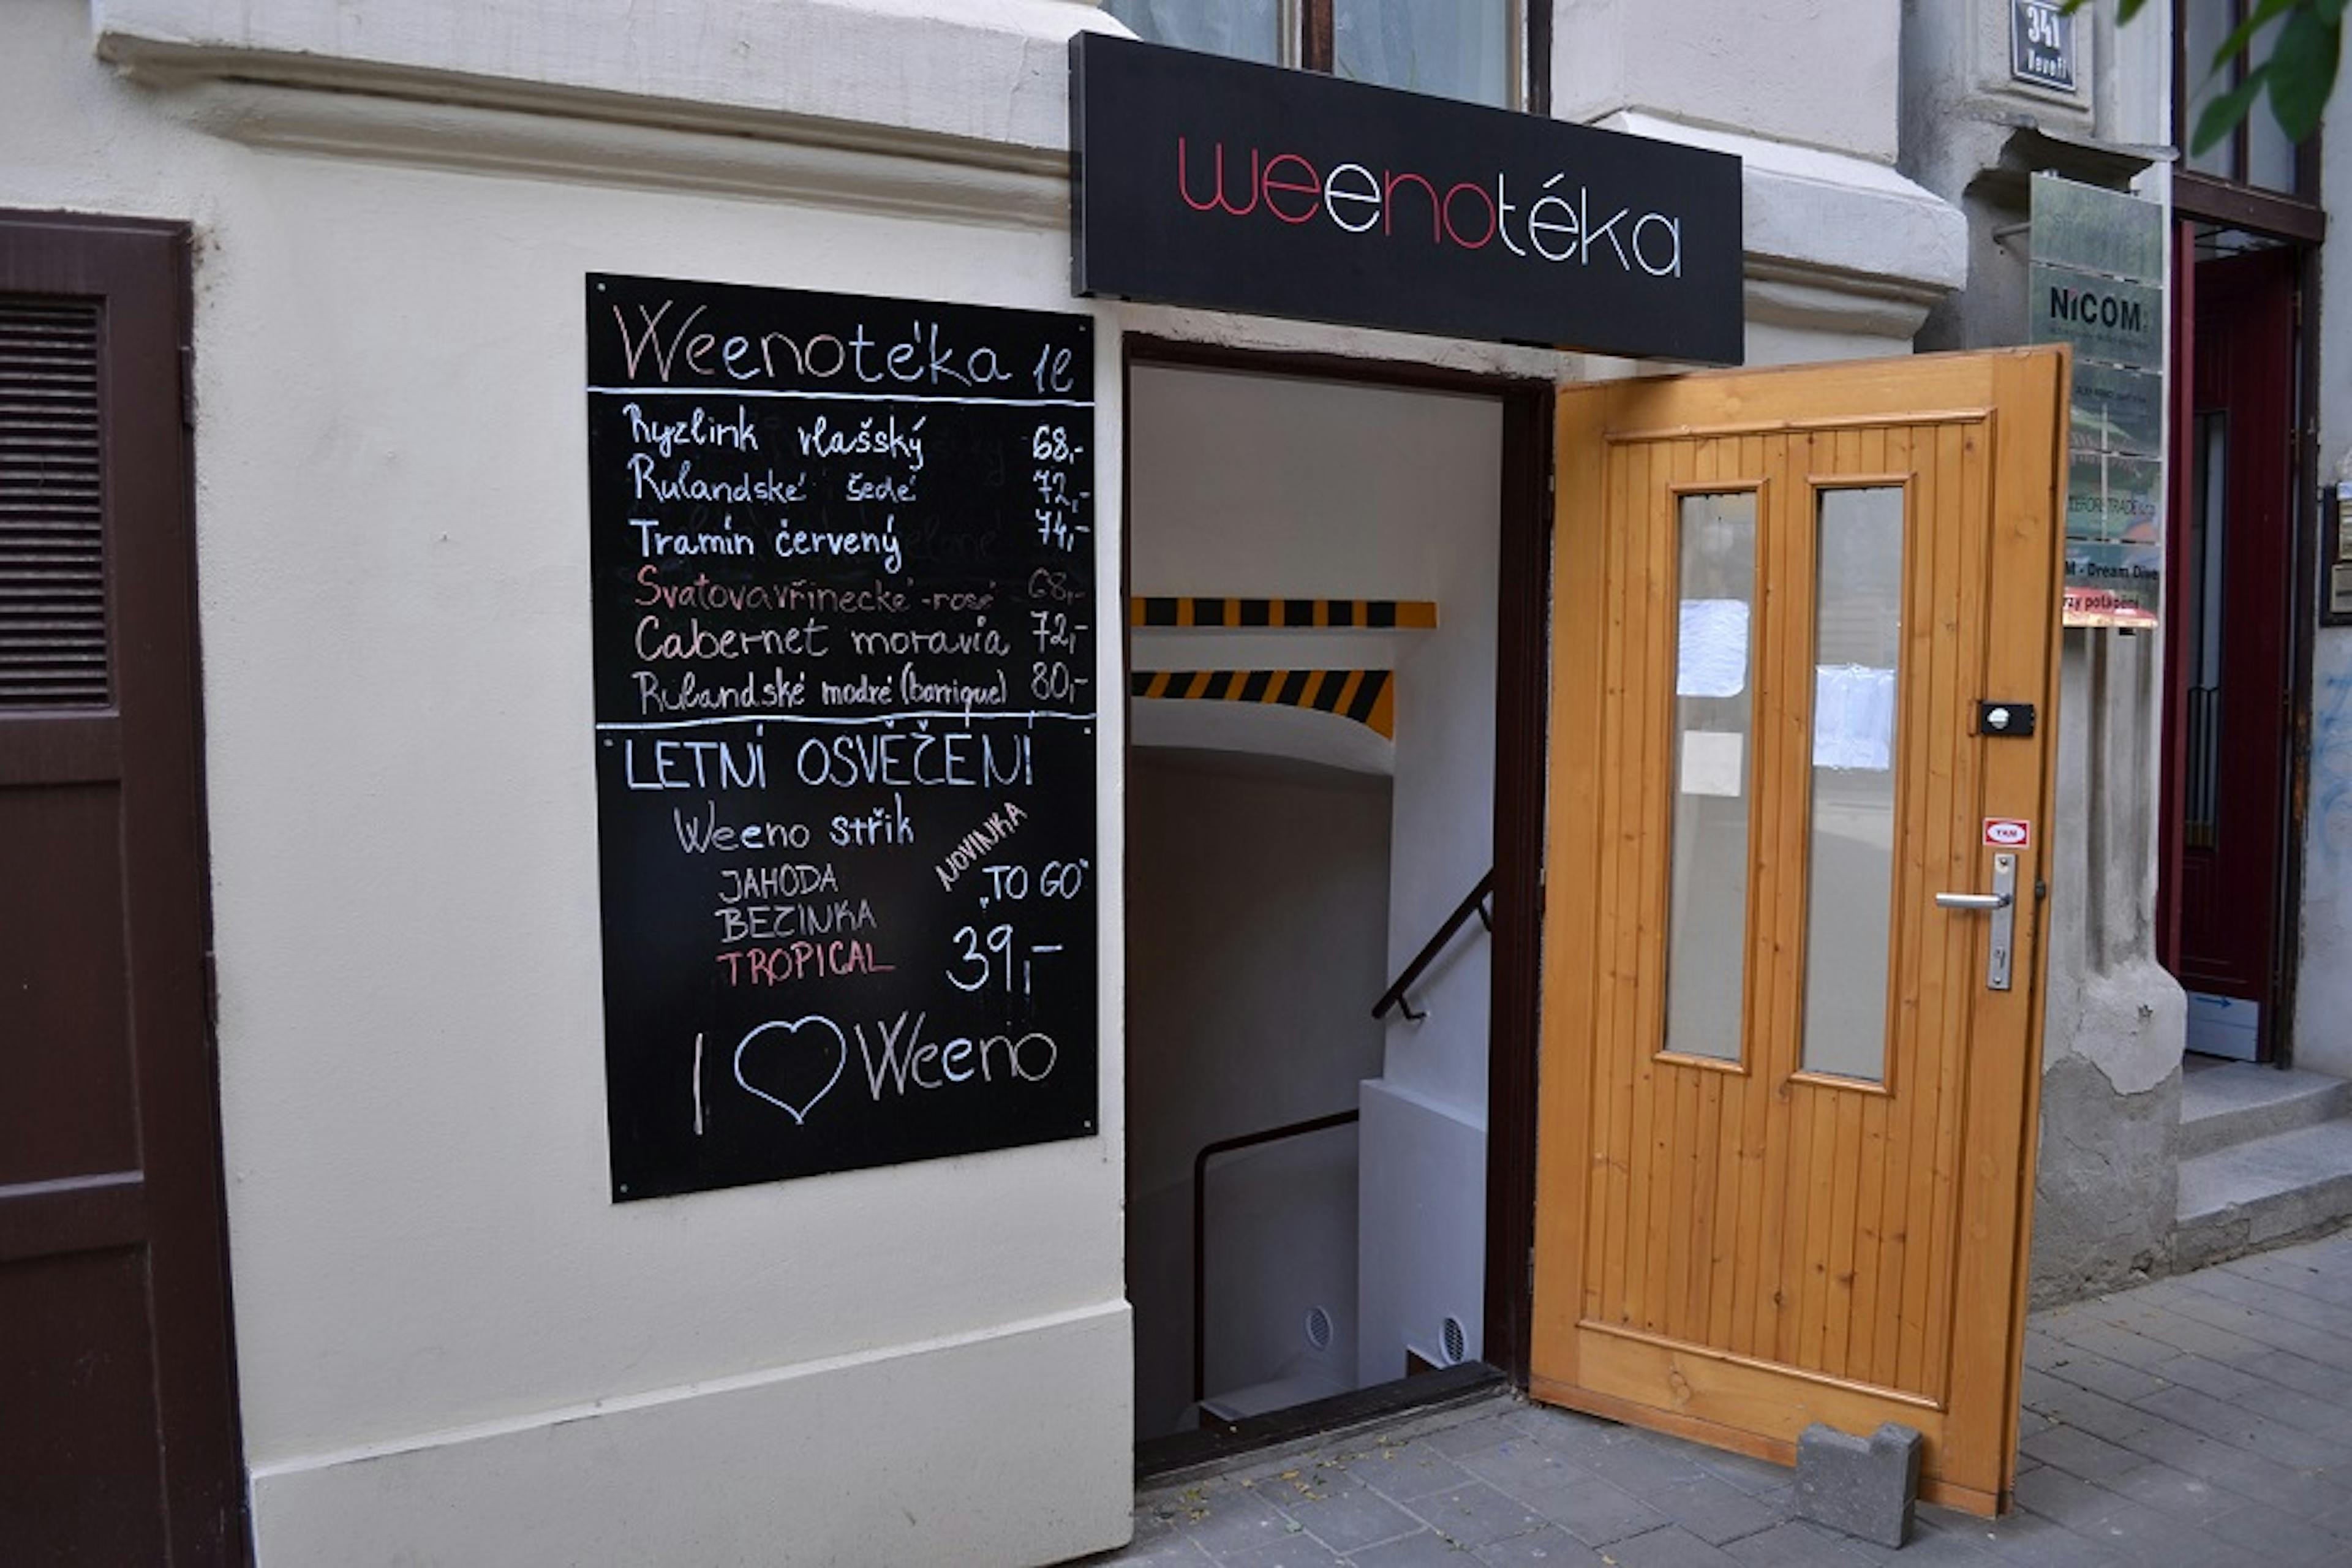 weenotéka
341
Veveří
Weenotéka 1l
Ryzlink vlašský 68,-
Rulandské šedé 72,-
Tramín červený 74,-
Svatovavřinecké -rosé 68,-
Cabernet moravia 72,-
Rulandské modré (barrique) 80,-
LETNÍ OSVĚČENÍ
Weeno střik
NOVINKA
JAHODA
„TO GO"
BEZINKA
TROPICAL
39,-
I Weeno
NiCOM
M - Dream Dive
rzy potápění
YAM